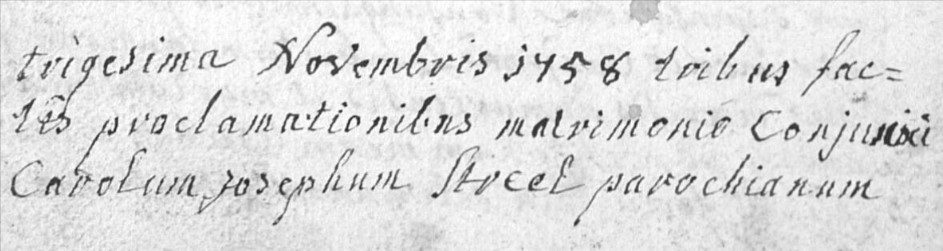 trigesima Novembris 1758 tribus fac=
tis proclamationibus matrimonio Conjunxi
Carolum josephum Street parochianum